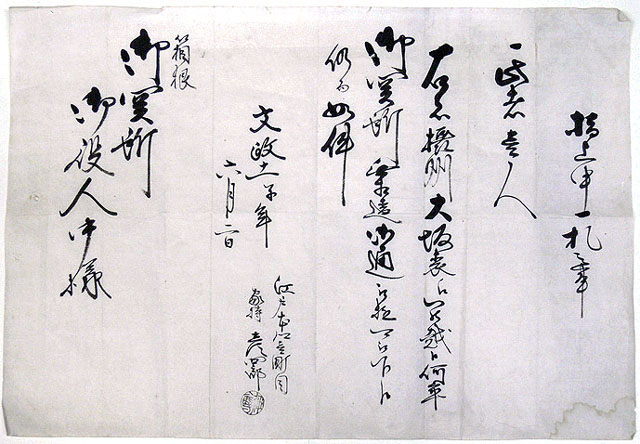 指上申一札之事
一此者壱人
右者摂州大坂表江罷越候何卒
御関所無相違御通可被下候
仍而如件
文政十一子年
六月二日
江戸本
家持
箱根
御関所
御役人中様